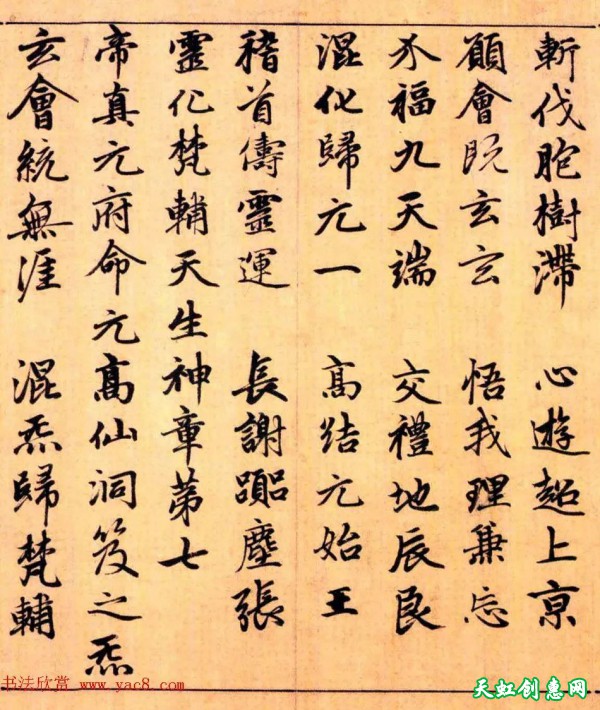 斬伐胞樹滯 心遊超上京
願會既玄玄 悟我理兼忘
介福九天端 交禮地辰良
混化歸元一 高結元始王
稽首儔靈運 長謝塵張
靈化梵輔天生神章第七
帝真元府命元高仙洞笈之炁
玄會統無涯 混炁歸梵輔
书法欣赏 www.yac8.com
天虹创惠网